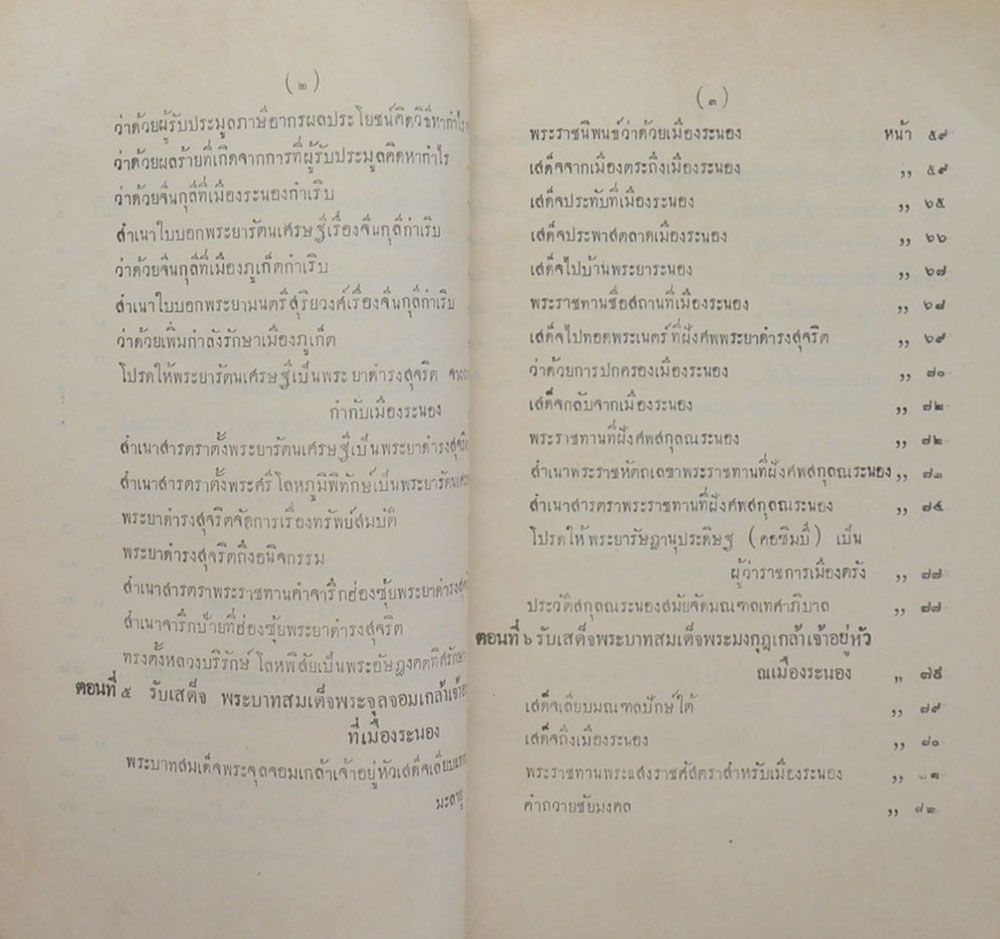 (๒)
ว่าด้วยผู้รับประมูลภาษีอากรผลประโยชน์คิดวิธีหากำไร
ว่าด้วยผลร้ายที่เกิดจากการที่ผู้รับประมูลคิดหากำไร
ว่าด้วยจีนกุลีที่เมืองระนองกำเริบ
สำเนาใบบอกพระยารัตนเศรษฐีเรื่องจีนกุลีกำเริบ
ว่าด้วยจีนกุลีที่เมืองภูเก็ตกำเริบ
สำเนาใบบอกพระยามนตรีสุริยวงศ์เรื่องจีนกุลีกำเริบ
ว่าด้วยเพิ่มกำลังรักษาเมืองภูเก็ต
โปรดให้พระยารัตนเศรษฐีเป็นพระยาดำรงสุจริต
กำกับเมืองระนอง
สำเนาสารตราตั้งพระยารัตนเศรษฐีเป็นพระยาดำรงสุจริต
สำเนาสารตราตั้งพระศรีโลหภูมิพิทักษ์เป็นพระยารัตนเศร
พระยาดำรงสุจริตจัดการเรื่องทรัพย์สมบัติ
พระยาดำรงสุจริตถึงอนิจกรรม
สำเนาสารตราพระราชทานคำจารึกฮ่องซุ้ยพระยาดำรงสุจ
สำเนาจารึกป้ายที่ฮ่องซุ้ยพระยาดำรงสุจริต
ทรงตั้งหลวงบริรักษ์โลหพิสัยเป็นพระอัษฎงคตทิศรักษา
ตอนที่ ๕ รับเสด็จ พระบาทสมเด็จพระจุลจอมเกล้าเจ้าอยู่
ที่เมืองระนอง
พระบาทสมเด็จพระจุลจอมเกล้าเจ้าอยู่หัวเสด็จเลียบแหล
มะลายู
(๓)
พระราชนิพนธ์ว่าด้วยเมืองระนอง หน้า ๕๙
เสด็จจากเมืองตระถึงเมืองระนอง ,, ๕๙
เสด็จประทับที่เมืองระนอง ,, ๖๕
เสด็จประพาสตลาดเมืองระนอง ,, ๖๖
เสด็จไปบ้านพระยาระนอง ,, ๖๗
พระราชทานชื่อสถานที่เมืองระนอง ,, ๖๘
เสด็จไปทอดพระเนตร์ที่ฝังศพพระยาดำรงสุจริต ,, ๖๙
ว่าด้วยการปกครองเมืองระนอง ,, ๗๐
เสด็จกลับจากเมืองระนอง ,, ๗๒
พระราชทานที่ฝังศพสกุลณระนอง ,, ๗๒
สำเนาพระราชหัตถเลขาพระราชทานที่ฝังศพสกุลณระนอง ,, ๗๓
สำเนาสารตราพระราชทานที่ฝังศพสกุลณระนอง ,, ๗๕
โปรดให้พระยารัษฎานุประดิษฐ (คอซิมบี๊) เป็น
ผู้ว่าราชการเมืองตรัง ,, ๗๗
ประวัติสกุลณระนองสมัยจัดมณฑลเทศาภิบาล ,, ๗๗
ตอนที่ ๖ รับเสด็จพระบาทสมเด็จพระมงกุฎเกล้าเจ้าอยู่หัว
ณเมืองระนอง ,, ๗๘
เสด็จเลียบมณฑลปักษ์ใต้ ,, ๗๙
เสด็จถึงเมืองระนอง ,, ๘๐
พระราชทานพระแสงราชศัสตราสำหรับเมืองระนอง ,, ๘๑
คำถวายชัยมงคล ,, ๘๒